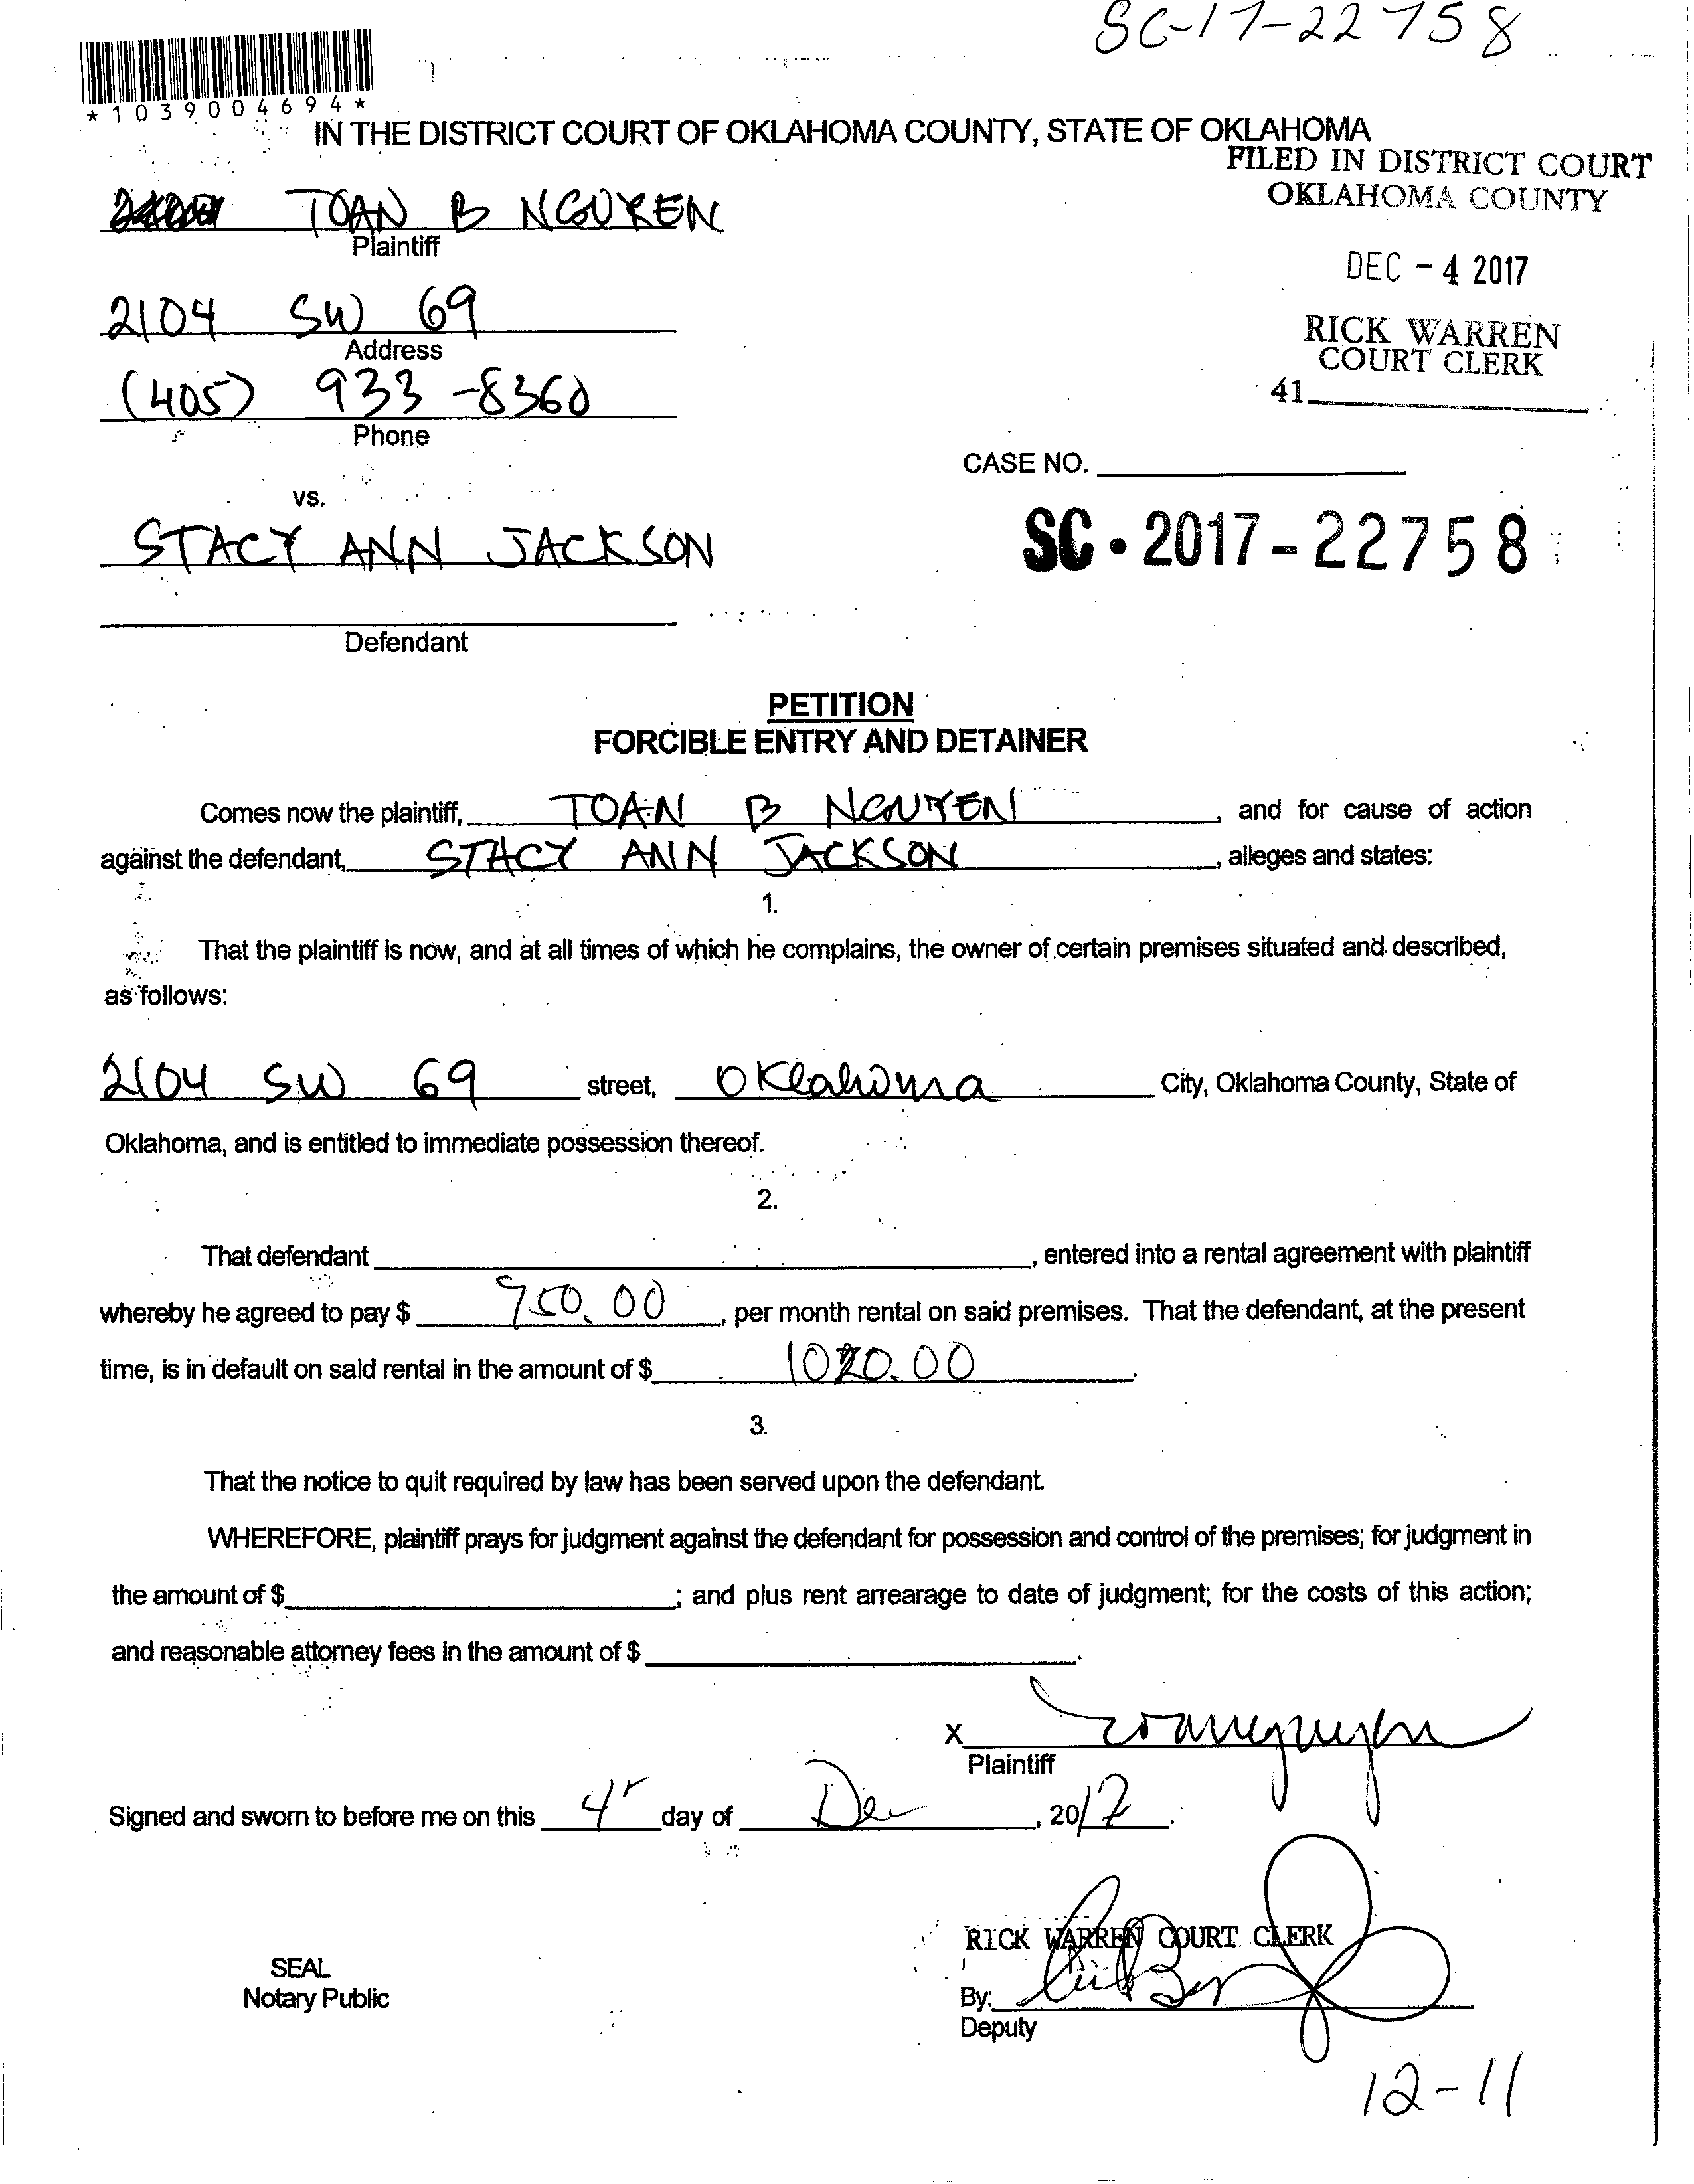 SC-17-22758
*1039004694*
IN THE DISTRICT COURT OF OKLAHOMA COUNTY, STATE OF OKLAHOMA
FILED IN DISTRICT COURT
OKLAHOMA COUNTY
TOAN B NGUYEN
Plaintiff
DEC - 4 2017
2104 SW 69
Address
RICK WARREN
COURT CLERK
(405) 933-8360
Phone
41
CASE NO.
vs.
STACY ANN JACKSON
SC - 2017 - 22758
Defendant
PETITION
FORCIBLE ENTRY AND DETAINER
Comes now the plaintiff, TOAN B NGUYEN, and for cause of action
against the defendant, STACY ANN JACKSON, alleges and states:
1.
That the plaintiff is now, and at all times of which he complains, the owner of certain premises situated and described,
as follows:
2104 SW 69 street, Oklahoma City, Oklahoma County, State of
Oklahoma, and is entitled to immediate possession thereof.
2.
That defendant, entered into a rental agreement with plaintiff
whereby he agreed to pay $ 950.00, per month rental on said premises. That the defendant, at the present
time, is in default on said rental in the amount of $ 1020.00.
3.
That the notice to quit required by law has been served upon the defendant.
WHEREFORE, plaintiff prays for judgment against the defendant for possession and control of the premises; for judgment in
the amount of $; and plus rent arrearage to date of judgment; for the costs of this action;
and reasonable attorney fees in the amount of $.
X toannguyen
Plaintiff
Signed and sworn to before me on this 4 day of Dec, 2017.
RICK WARREN COURT CLERK
SEAL
Notary Public
By:
Deputy
12-11